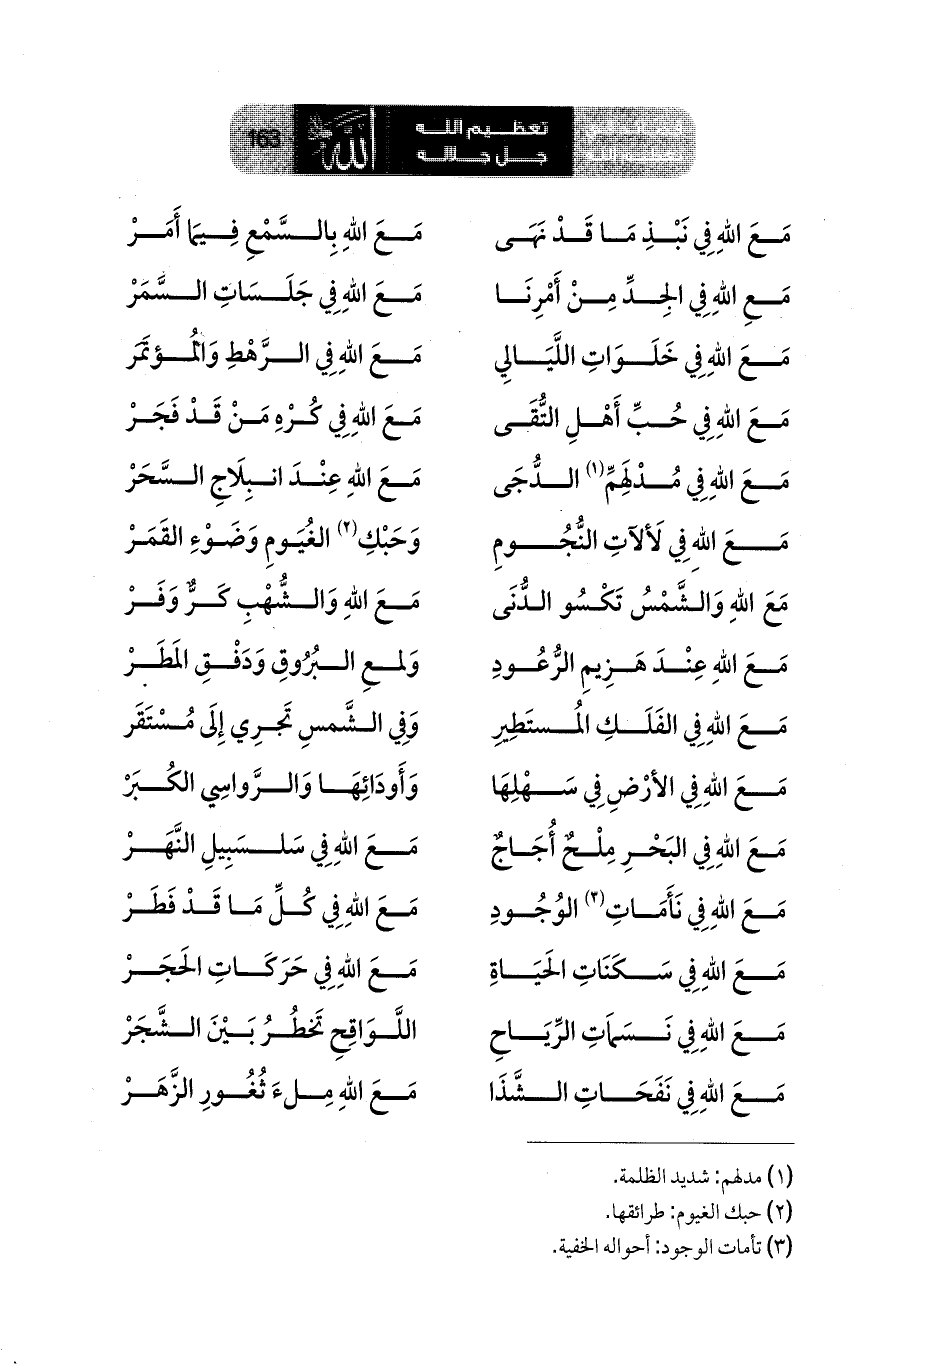 قصائد في تعظيم الله
تعظـيم الله جـل جـلاله
163
مَـعَ اللهِ فِي نَبْـذِ مَـا قَـدْ نَهَـى مَـعَ اللهِ بِالـسَّمْعِ فِـيمَا أَمَـرْ
مَـعِ اللهِ فِي الجِـدِّ مِـنْ أَمْرِنَـا مَـعَ اللهِ فِي جَلَـسَاتِ الـسَّمَرْ
مَـعَ اللهِ فِي خَلَـوَاتِ اللَّيَـالِي مَـعَ اللهِ فِي الـرَّهْطِ وَالمُـؤتَمَرْ
مَـعَ اللهِ فِي حُـبِّ أَهْـلِ التُّقَـى مَـعَ اللهِ فِي كُـرْهِ مَـنْ قَـدْ فَجَـرْ
مَـعَ اللهِ فِي مُـدْلَهِمِّ(١) الـدُّجَى مَـعَ اللهِ عِنْـدَ انـبِلَاجِ الـسَّحَرْ
مَـعَ اللهِ فِي لَألآتِ النُّجُـومِ وَحَبْكِ(٢) الغُيَـومِ وَضَوْءِ القَمَـرْ
مَعَ اللهِ وَالـشَّمْسُ تَكْسُو الـدُّنَى مَـعَ اللهِ وَالـشُّهْبِ كَـرٌّ وَفَـرْ
مَـعَ اللهِ عِنْـدَ هَـزِيمِ الرُّعُـودِ وَلمـعِ الـبُرُوقِ وَدَفْـقِ المَطَـرْ
مَـعَ اللهِ فِي الفَلَـكِ المُـستَطِيرِ وَفِي الـشَّمسِ تَجْرِي إِلَى مُـسْتَقَر
مَـعَ اللهِ فِي الأرْضِ فِي سَـهْلِهَا وَأَودَائِهَـا وَالـرَّواسِي الكُـبَرْ
مَـعَ اللهِ فِي البَحْـرِ مِلْـحٌ أُجَـاجٌ مَـعَ اللهِ فِي سَلـسَبِيلِ النَّهَـرْ
مَـعَ اللهِ فِي نَأَمَـاتِ(٣) الوُجُـودِ مَـعَ اللهِ فِي كُـلِّ مَـا قَـدْ فَطَـرْ
مَـعَ اللهِ فِي سَـكَنَاتِ الحَيَـاةِ مَـعَ اللهِ فِي حَرَكَـاتِ الحَجَـرْ
مَـعَ اللهِ فِي نَـسَمَاتِ الرِّيَـاحِ اللَّـوَاقِحِ تَخطُـرُ بَـيْنَ الـشَّجَرْ
مَـعَ اللهِ فِي نَفَحَـاتِ الـشَّذَا مَـعَ اللهِ مِـلءَ ثُغُـورِ الزَّهَـرْ
(١) مدلهم: شديد الظلمة.
(٢) حبك الغيوم: طرائقها.
(٣) تأمات الوجود: أحواله الخفية.